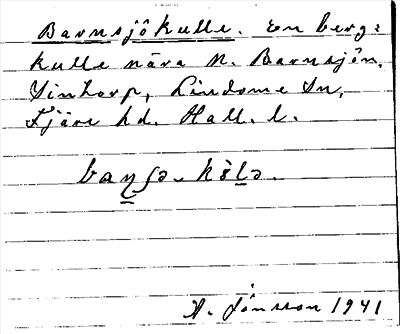 Barnsjökulle. En berg-
kulle nära N. Barnsjön,
Vintorp, Lindome Sn,
Fjäre hd. Hall. l.
A. Jönsson 1941